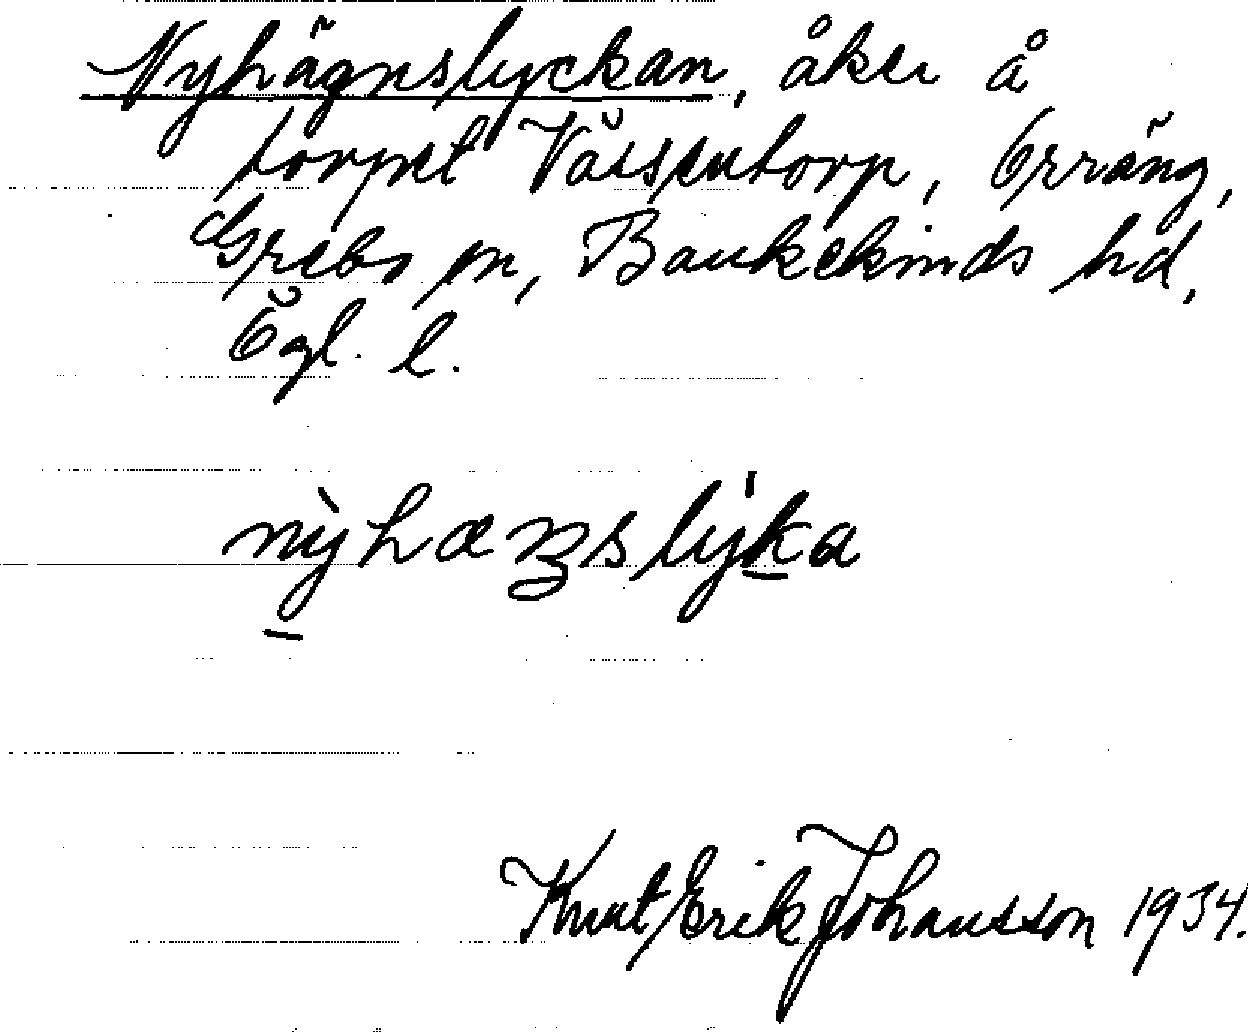 Nyhägnslyckan, åker å
torpet Väissentorp, Örräng,
Grebo sn, Bankekinds hd,
Ögl. l.
nỳhæŋslỳka
Knut Erik Johansson 1934.